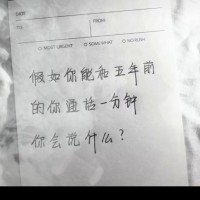 DATE
TO FROM
○ MOST URGENT ○ SOMEWHAT ○ NO RUSH
假如你能和五年前
的你通话一分钟
你会说什么?